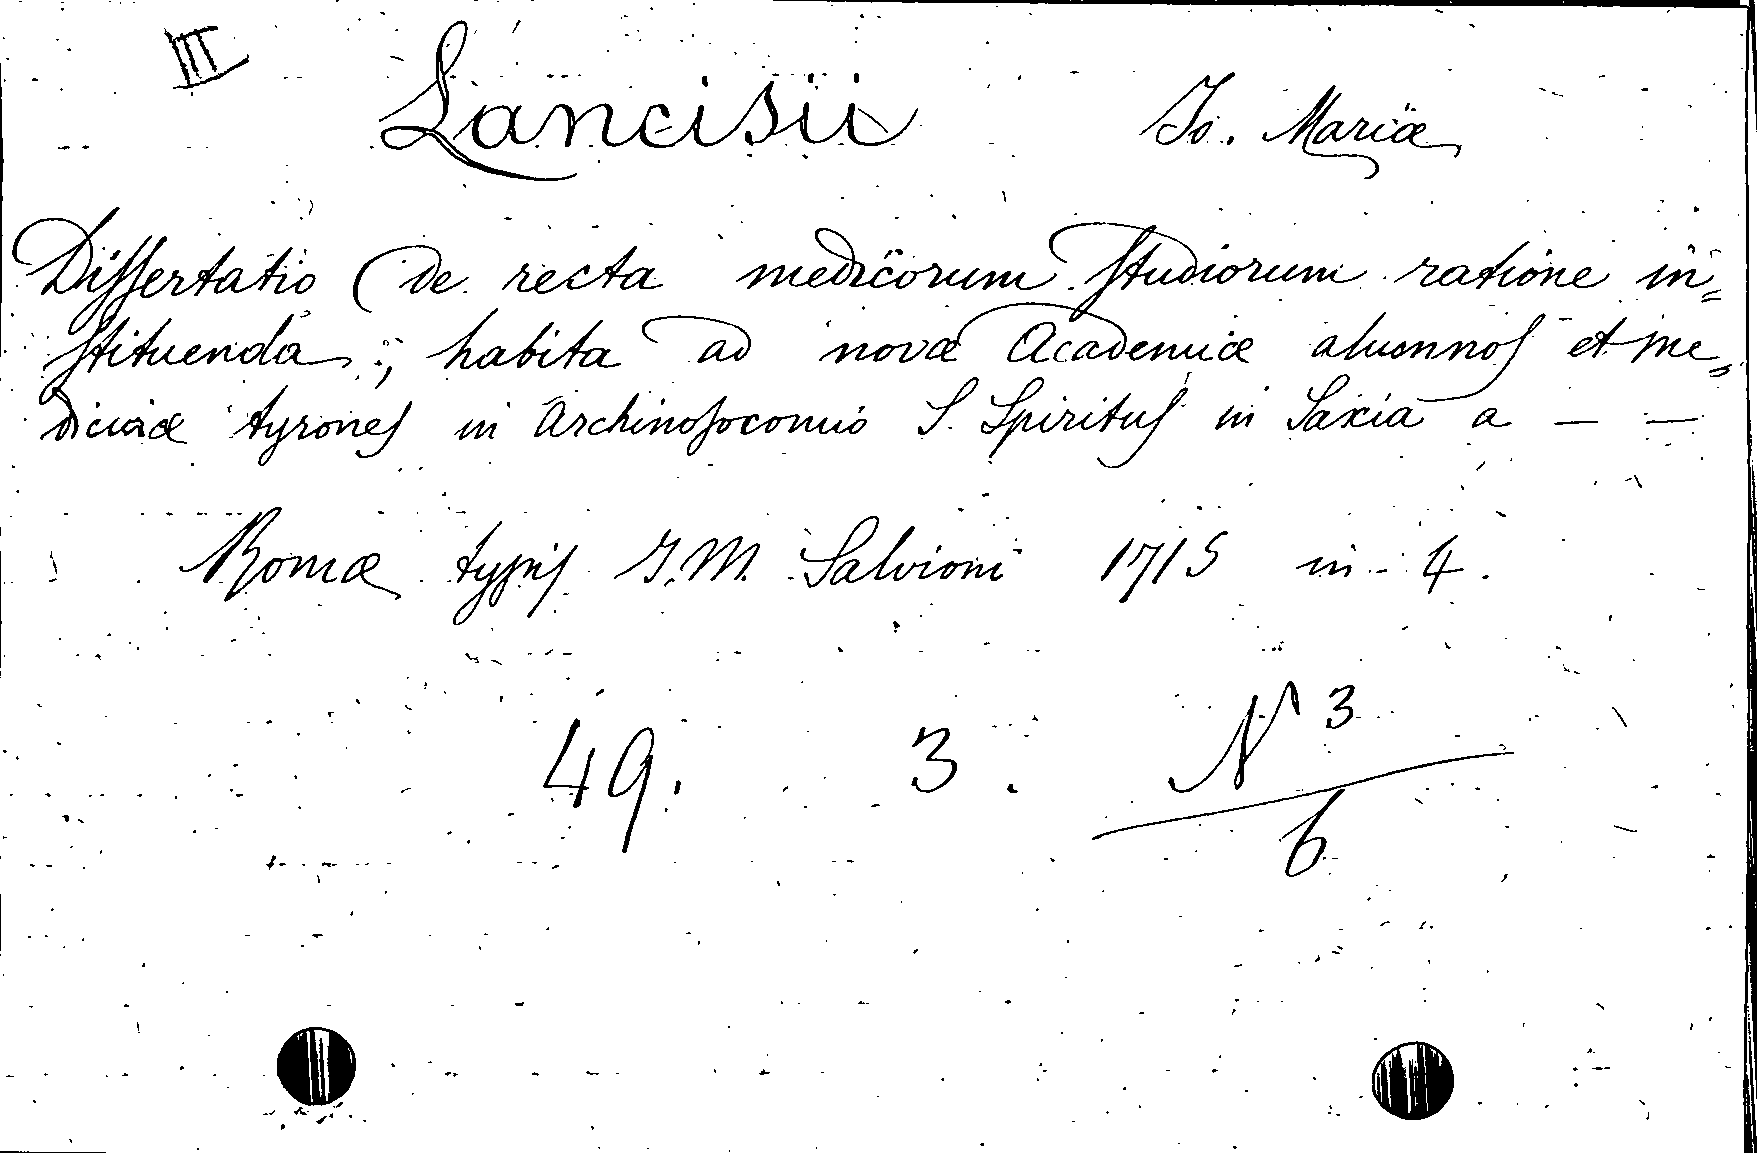 III
Lancisii Jo. Mariæ
Dissertatio de recta medicorum studiorum ratione in=
stituenda; habita ad novæ Academiæ alumnos et me=
dicinæ tyrones in Archinosocomio S. Spiritus in Saxia a — —
Romæ typis J. M. Salvioni 1715 in 4.
49. 3. N 3
6